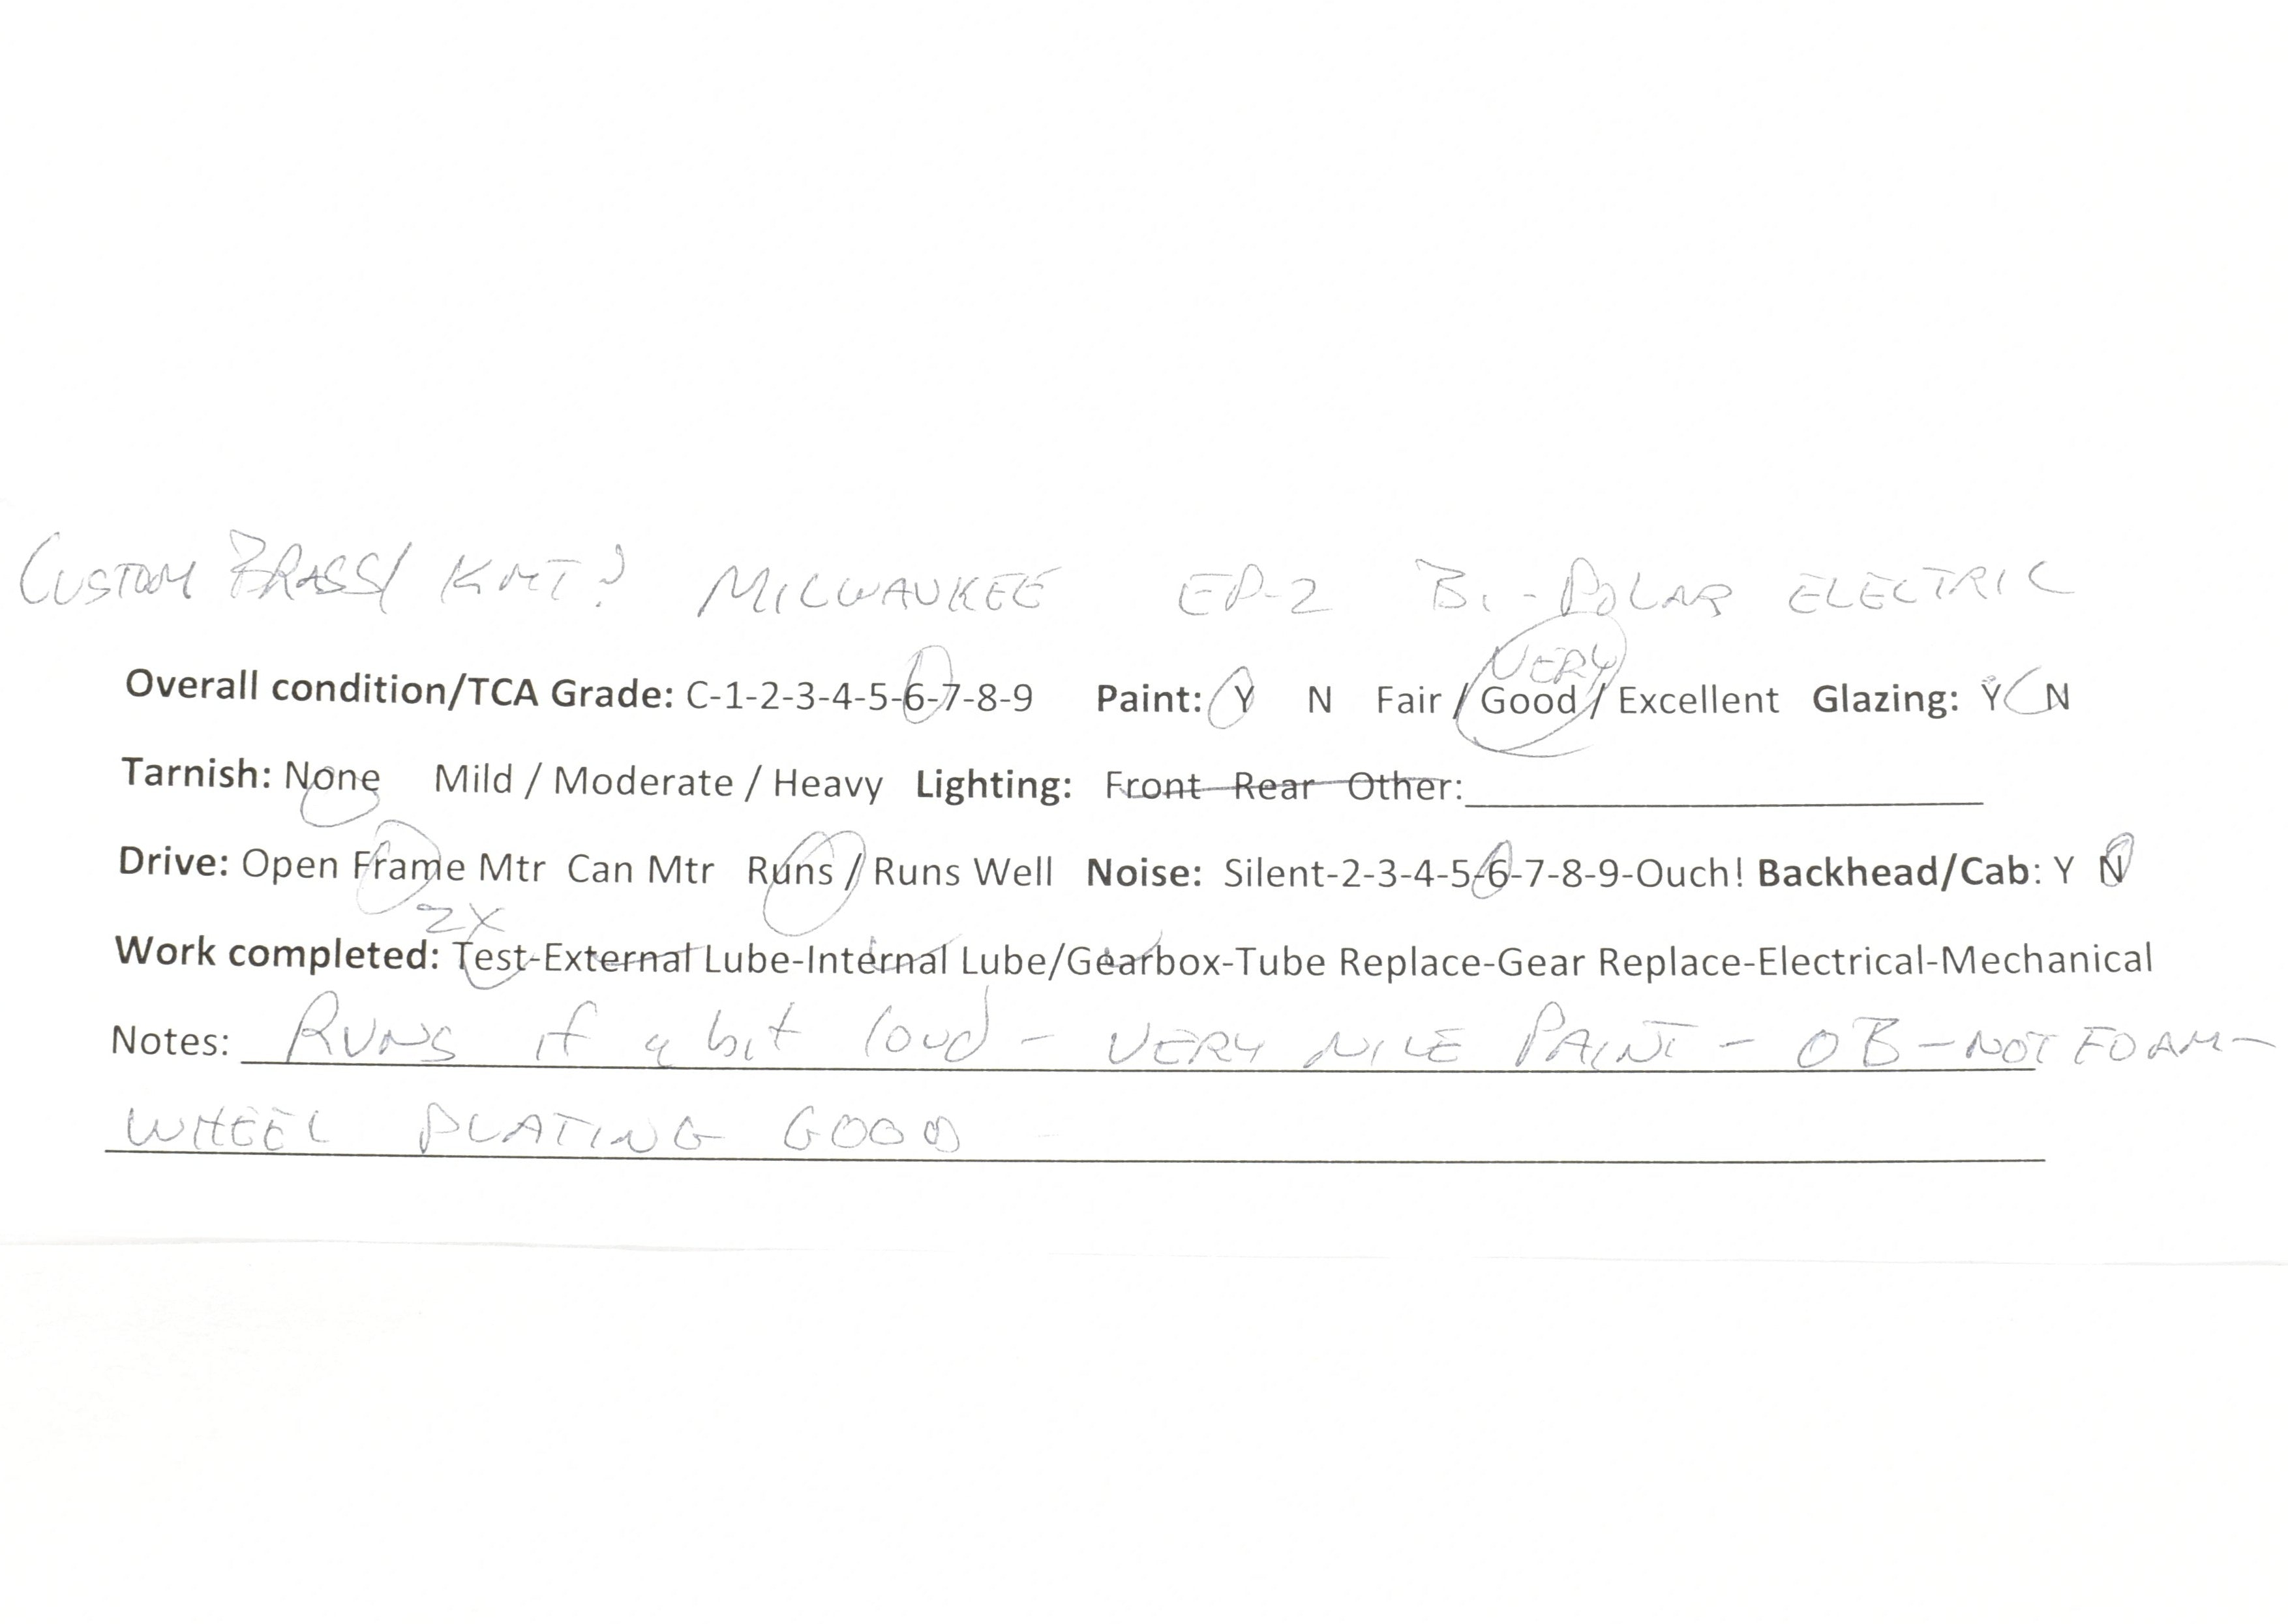 CUSTOM BRASS/ KMT? MILWAUKEE EP-2 Bi-POLAR ELECTRIC
VERY
Overall condition/TCA Grade: C-1-2-3-4-5-6-7-8-9 Paint: Y N Fair / Good / Excellent Glazing: Y N
Tarnish: None Mild / Moderate / Heavy Lighting: Front Rear Other:
Drive: Open Frame Mtr Can Mtr Runs / Runs Well Noise: Silent-2-3-4-5-6-7-8-9-Ouch! Backhead/Cab: Y N
2X
Work completed: Test-External Lube-Internal Lube/Gearbox-Tube Replace-Gear Replace-Electrical-Mechanical
Notes: RUNS if a bit loud - VERY NICE PAINT - OB - NOT FOAM -
WHEEL PLATING GOOD